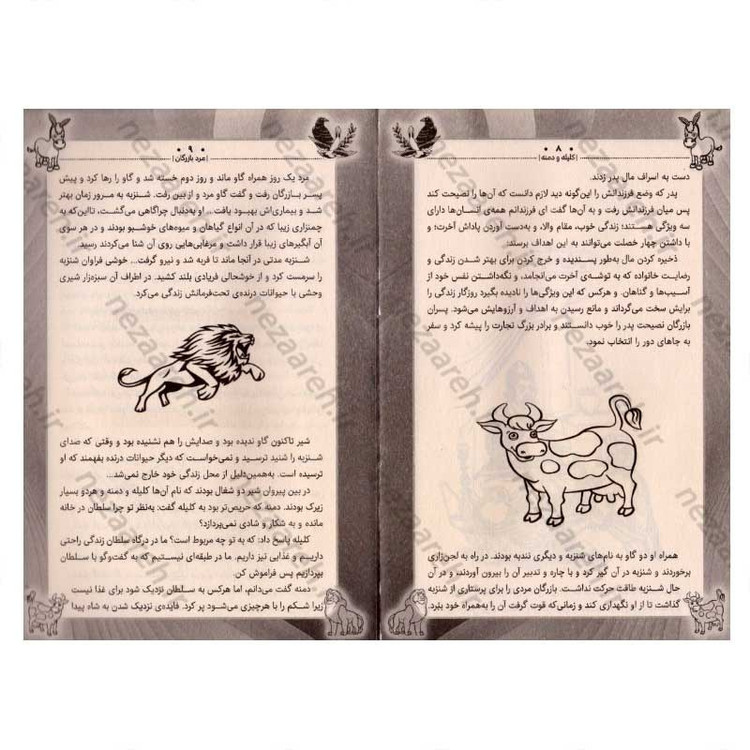 ۰ ۸ ۰
| کلیله و دمنه |
دست به اسراف مال پدر زدند.
پدر که وضع فرزندانش را این‌گونه دید لازم دانست که آن‌ها را نصیحت کند
پس میان فرزندانش رفت و به آن‌ها گفت ای فرزندانم همه‌ی انسان‌ها دارای
سه ویژگی هستند؛ زندگی خوب، مقام والا، و به‌دست آوردن پاداش آخرت؛ و
با داشتن چهار خصلت می‌توانند به این اهداف برسند:
ذخیره کردن مال به‌طور پسندیده و خرج کردن برای بهتر شدن زندگی و
رضایت خانواده که به توشه‌ی آخرت می‌انجامد، و نگه‌داشتن نفس خود از
آسیب‌ها و گناهان. و هرکس که این ویژگی‌ها را نادیده بگیرد روزگار زندگی را
برایش سخت می‌گرداند و مانع رسیدن به اهداف و آرزوهایش می‌شود. پسران
بازرگان نصیحت پدر را خوب دانستند و برادر بزرگ تجارت را پیشه کرد و سفر
به جاهای دور را انتخاب نمود.
همراه او دو گاو به نام‌های شنزبه و دیگری نندبه بودند. در راه به لجن‌زاری
برخوردند و شنزبه در آن گیر کرد و با چاره و تدبیر آن را بیرون آوردند، و در آن
حال شنزبه طاقت حرکت نداشت. بازرگان مردی را برای پرستاری از شنزبه
گذاشت تا از او نگهداری کند و زمانی‌که قوت گرفت آن را به‌همراه خود ببرد.
۰ ۹ ۰
| مرد بازرگان |
مرد یک روز همراه گاو ماند و روز دوم خسته شد و گاو را رها کرد و پیش
پسر بازرگان رفت و گفت گاو مرد و از بین رفت. شنزبه به مرور زمان بهتر
شد و بیماری‌اش بهبود یافت... او به‌دنبال چراگاهی می‌گشت، تااین‌که به
چمنزاری زیبا که در آن انواع گیاهان و میوه‌های خوشبو بودند و در هر سوی
آن آبگیرهای زیبا قرار داشت و مرغابی‌هایی روی آن شنا می‌کردند رسید.
شنزبه مدتی در آنجا ماند تا فربه شد و نیرو گرفت... خوشی فراوان شنزبه
را سرمست کرد و از خوشحالی فریادی بلند کشید. در اطراف آن سبزه‌زار شیری
وحشی با حیوانات درنده‌ی تحت‌فرمانش زندگی می‌کرد.
شیر تاکنون گاو ندیده بود و صدایش را هم نشنیده بود و وقتی که صدای
شنزبه را شنید ترسید و نمی‌خواست که دیگر حیوانات درنده بفهمند که او
ترسیده است. به‌همین‌دلیل از محل زندگی خود خارج نمی‌شد...
در بین پیروان شیر دو شغال بودند که نام آن‌ها کلیله و دمنه و هردو بسیار
زیرک بودند. دمنه که حریص‌تر بود به کلیله گفت: به‌نظر تو چرا سلطان در خانه
مانده و به شکار و شادی نمی‌پردازد؟
کلیله پاسخ داد: که به تو چه مربوط است؟ ما در درگاه سلطان زندگی راحتی
داریم و غذایی نیز داریم. ما در طبقه‌ای نیستیم که به گفت‌وگو با سلطان
بپردازیم پس فراموش کن.
دمنه گفت می‌دانم، اما هرکس به سلطان نزدیک شود برای غذا نیست
زیرا شکم را با هرچیزی می‌شود پر کرد. فایده‌ی نزدیک شدن به شاه پیدا
nezaareh.ir